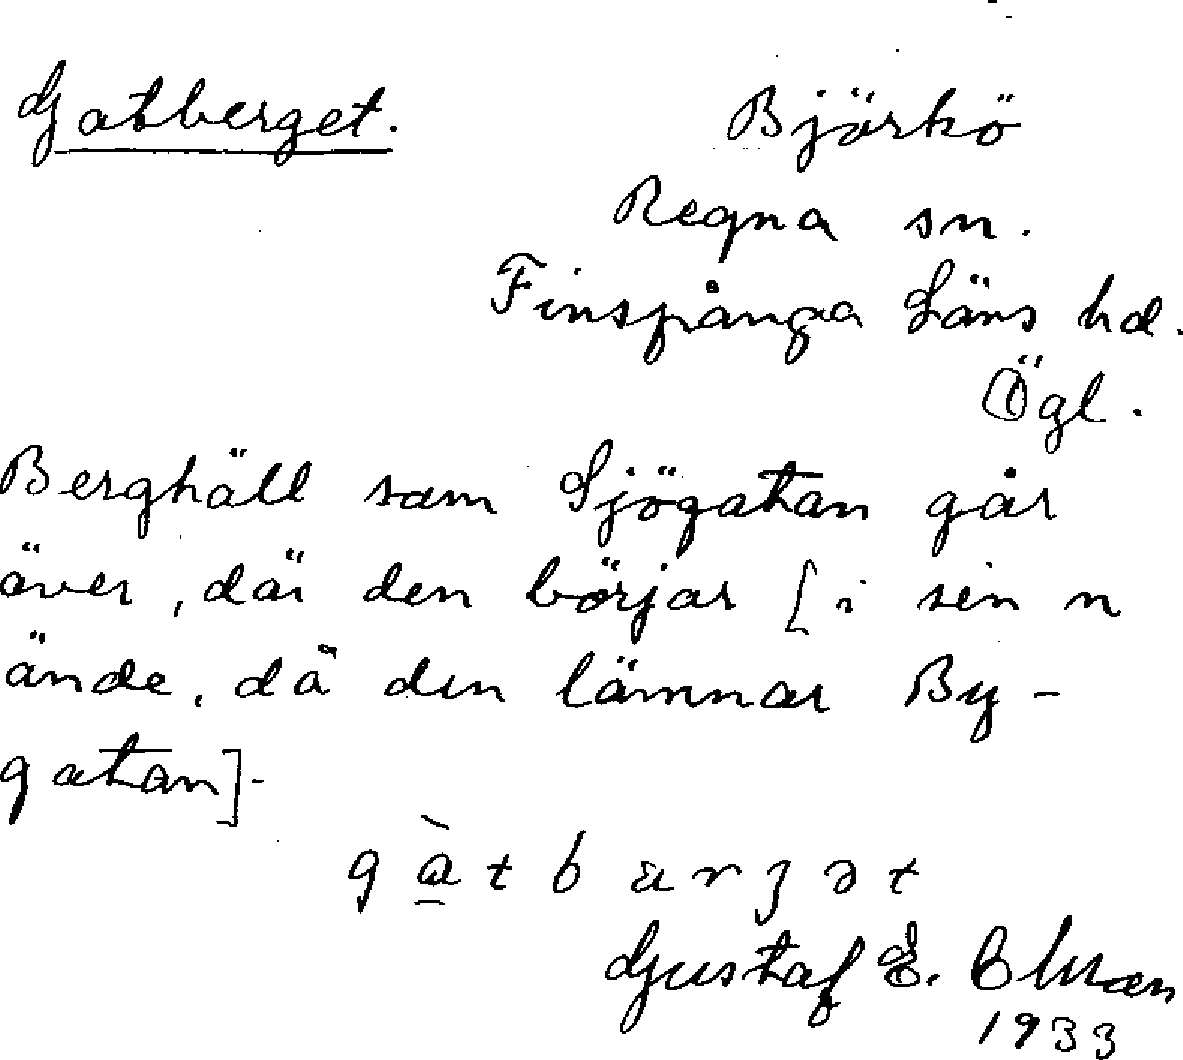 Gatberget.
Björkö
Regna sn.
Finspånga Läns hd.
Ögl.
Berghäll som Sjögatan går
över, där den börjar [i sin n
ände, då den lämnar By-
gatan].
gàtbärʒət
Gustaf E.
1933